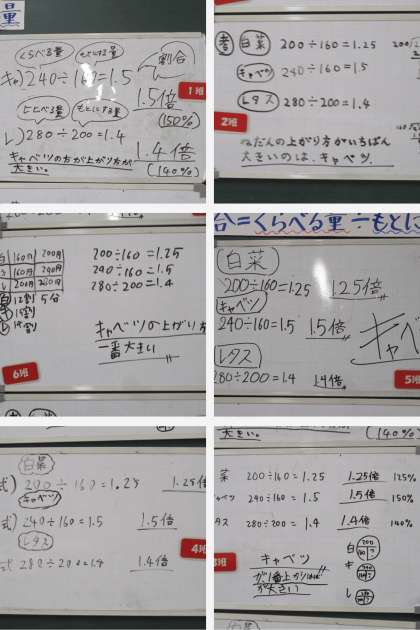 量
くらべる量 もとにする量 割合
キャ)240÷160=1.5
1.5倍
(150%)
1班
くらべる量 もとにする量
レ)280÷200=1.4
1.4倍
(140%)
キャベツの方が上がり方が
大きい。
考 白菜 200÷160=1.25
キャベツ 240÷160=1.5
レタス 280÷200=1.4
2班
ねだんの上がり方がいちばん
大きいのは、キャベツ。
白 160円 200円
160円 240円
レ 200円 280円
白 12割5分
キ 15割
レ 14割
200÷160=1.25
240÷160=1.5
280÷200=1.4
キャベツの上がり方
一番大きい
6班
合=くらべる量÷もとに
白菜
200÷160=1.25 1.25倍
キャベツ
240÷160=1.5 1.5倍
レタス
280÷200=1.4 1.4倍
キャベ
5班
白菜
式)200÷160=1.25 1.25倍
キャベツ
式)240÷160=1.5 1.5倍
レタス
式280÷200=1.4 1.4倍
4班
大きい。 (140%)
菜 200÷160=1.25 1.25倍 125%
キャベツ 240÷160=1.5 1.5倍 150%
タス 280÷200=1.4 1.4倍 140%
3班
キャベツ
が1番上がり
が大きい
白
キ
レ